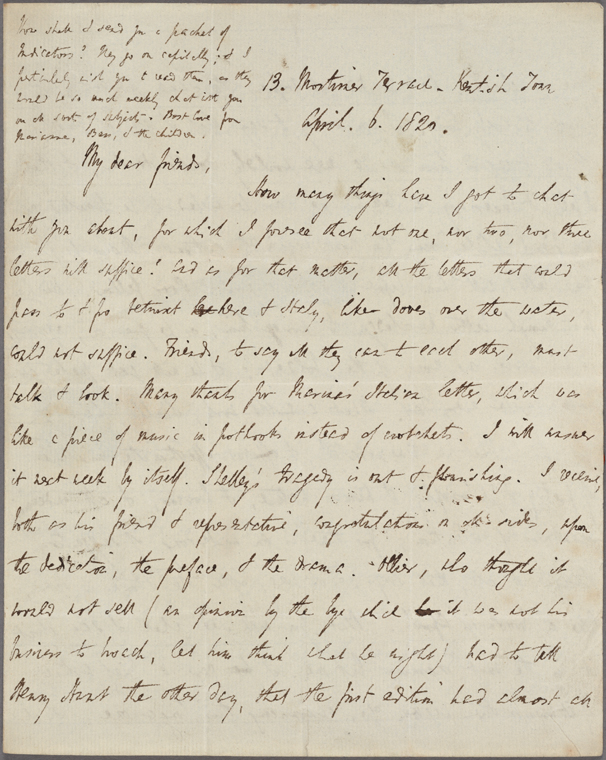 How shall I send you a packet of
Indicators? They go on capitally; & I
particularly wish you to read them, as they
would be so much weekly chat with you
on all sort of subjects. Best love from
Marianne, Bess, & the children.
13. Mortimer Terrace - Kentish Town
April. 6. 1820.
My dear friends,
How many things have I got to chat
with you about, for which I foresee that not one, nor two, nor three
letters will suffice! And as for that matter, all the letters that could
pass to & fro betwixt here & Italy, like doves over the water,
could not suffice. Friends, to say all they can to each other, must
talk & look. Many thanks for Marina's Italian letter, which was
like a piece of music in pothooks instead of crotchets. I will answer
it next week by itself. Shelley's tragedy is out & flourishing. I receive,
both as his friend & representative, congratulations on all sides, upon
the dedication, the preface, & the drama. Ollier, who thought it
would not sell (an opinion by the bye which it was not his
business to broach, let him think what he might) had to tell
Henry Hunt the other day, that the first edition had almost all